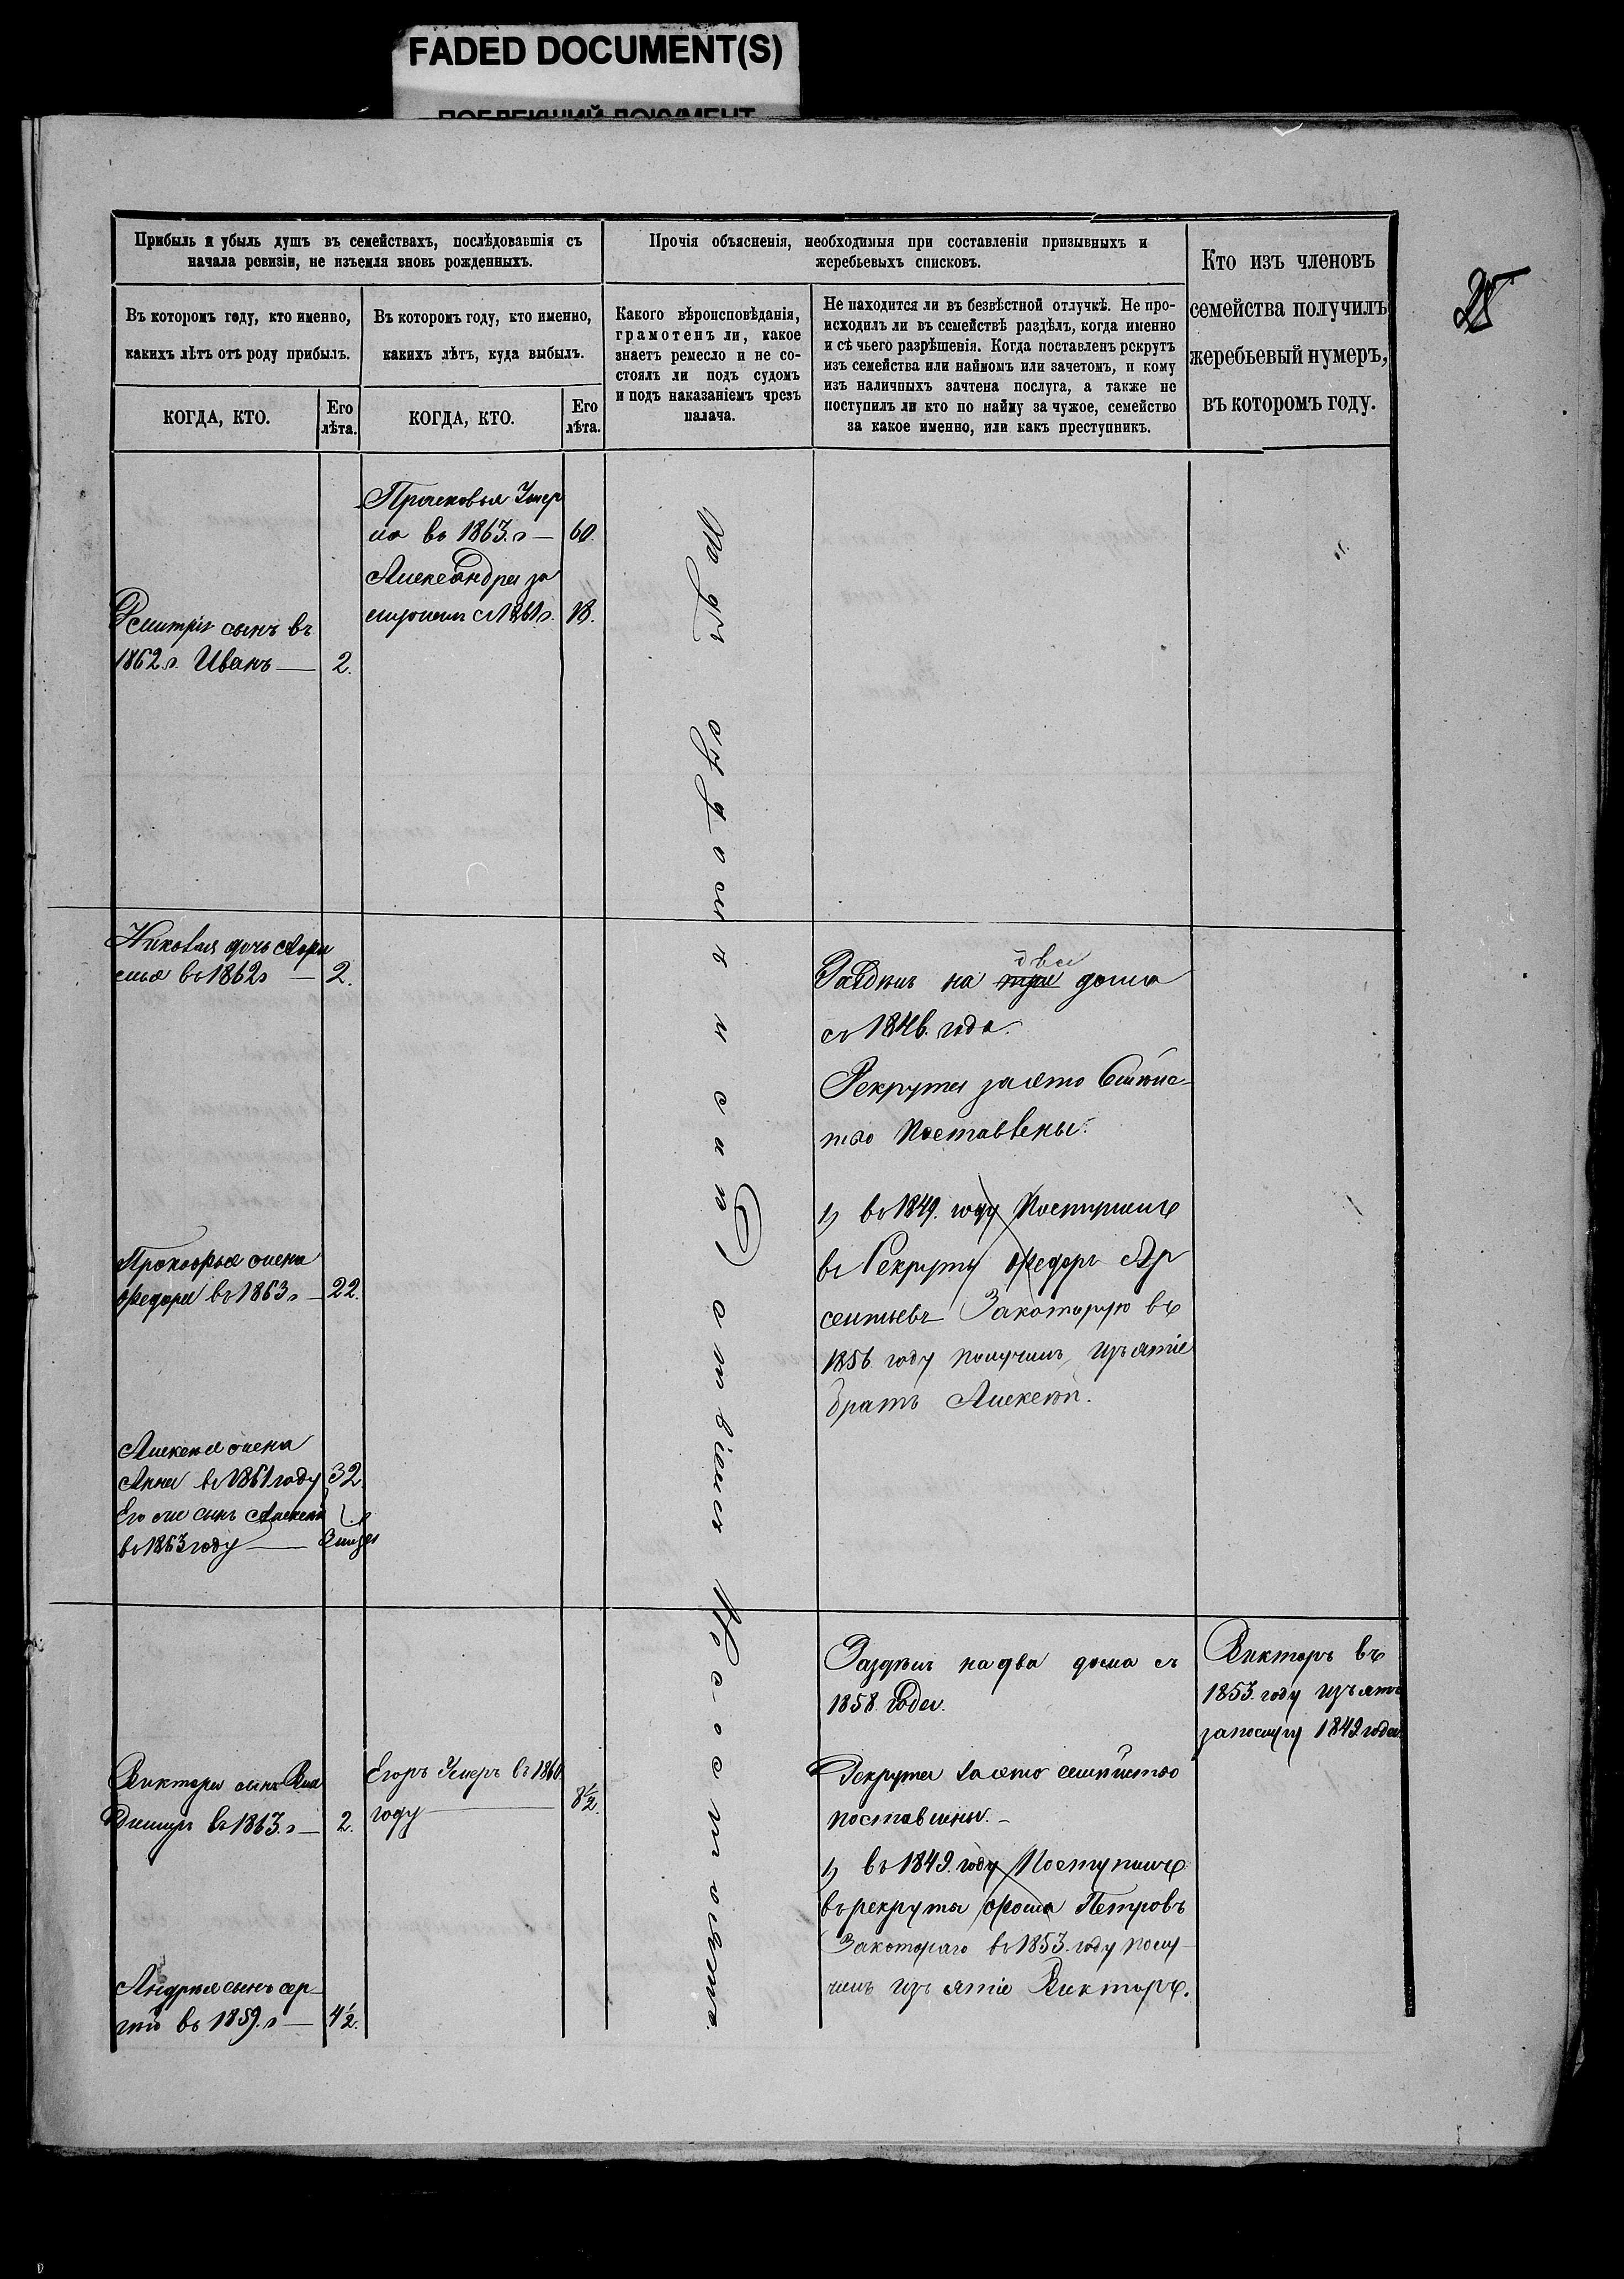 FADED DOCUMENT(S)
ПОБЛЕКШИЙ ДОКУМЕНТ
25
Прибыль и убыль душъ въ семействахъ, послѣдовавшія съ
начала ревизіи, не изъемля вновь рожденныхъ.
Прочія объясненія, необходимыя при составленіи призывныхъ и
жеребьевыхъ списковъ.
Кто изъ членовъ
семейства получилъ
жеребьевый нумеръ,
въ которомъ году.
Въ которомъ году, кто именно,
какихъ лѣтъ отъ роду прибылъ.
Въ которомъ году, кто именно,
какихъ лѣтъ, куда выбылъ.
Какого вѣроисповѣданія,
грамотенъ ли, какое
знаетъ ремесло и не со-
стоялъ ли подъ судомъ
и подъ наказаніемъ чрезъ
палача.
Не находится ли въ безвѣстной отлучкѣ. Не про-
исходилъ ли въ семействѣ раздѣлъ, когда именно
и съ чьего разрѣшенія. Когда поставленъ рекрутъ
изъ семейства или наймомъ или зачетомъ, и кому
изъ наличныхъ зачтена послуга, а также не
поступилъ ли кто по найму за чужое, семейство
за какое именно, или какъ преступникъ.
КОГДА, КТО.
Его
лѣта.
КОГДА, КТО.
Его
лѣта.
Прасковья Умер
ла въ 1863. г — 60.
Александра за
мужемъ с 1861 г. 18.
Дмитрія сынъ въ
1862. г. Иванъ — 2.
Подъ судомъ и наказаніемъ не состоялъ
Николая дочь
въ 1862 г — 2.
Прокофья жена
Федора въ 1863 г — 22.
Алексея жена
Анна въ 1861 году 32
Его же сынъ Алексей
въ 1863 году —
Раздѣлъ на три два дома
съ 1846. года.
Рекруты за это Семѣйс-
тво Поставлены:
1) въ 1849. году Поступилъ
въ Рекруты Федоръ Ар
сентьевъ За которую въ
1856 году получилъ изъятіе
братъ Алексей.
Раздѣлъ на два дома съ
1858 года.
Рекруты за это семѣйство
поставлены. —
1) въ 1849. году Поступилъ
въ рекруты Фома Петровъ
За котораго въ 1853. году полу-
чилъ изъятіе Викторъ.
Викторъ въ
1853. году изъятъ
за послугу 1849 года
Виктора сынъ Вла
димиръ въ 1863. г — 2.
Егоръ Умеръ въ 1860
году — 8½.
Андрея сынъ Сер-
гѣй въ 1859. г — 4½.